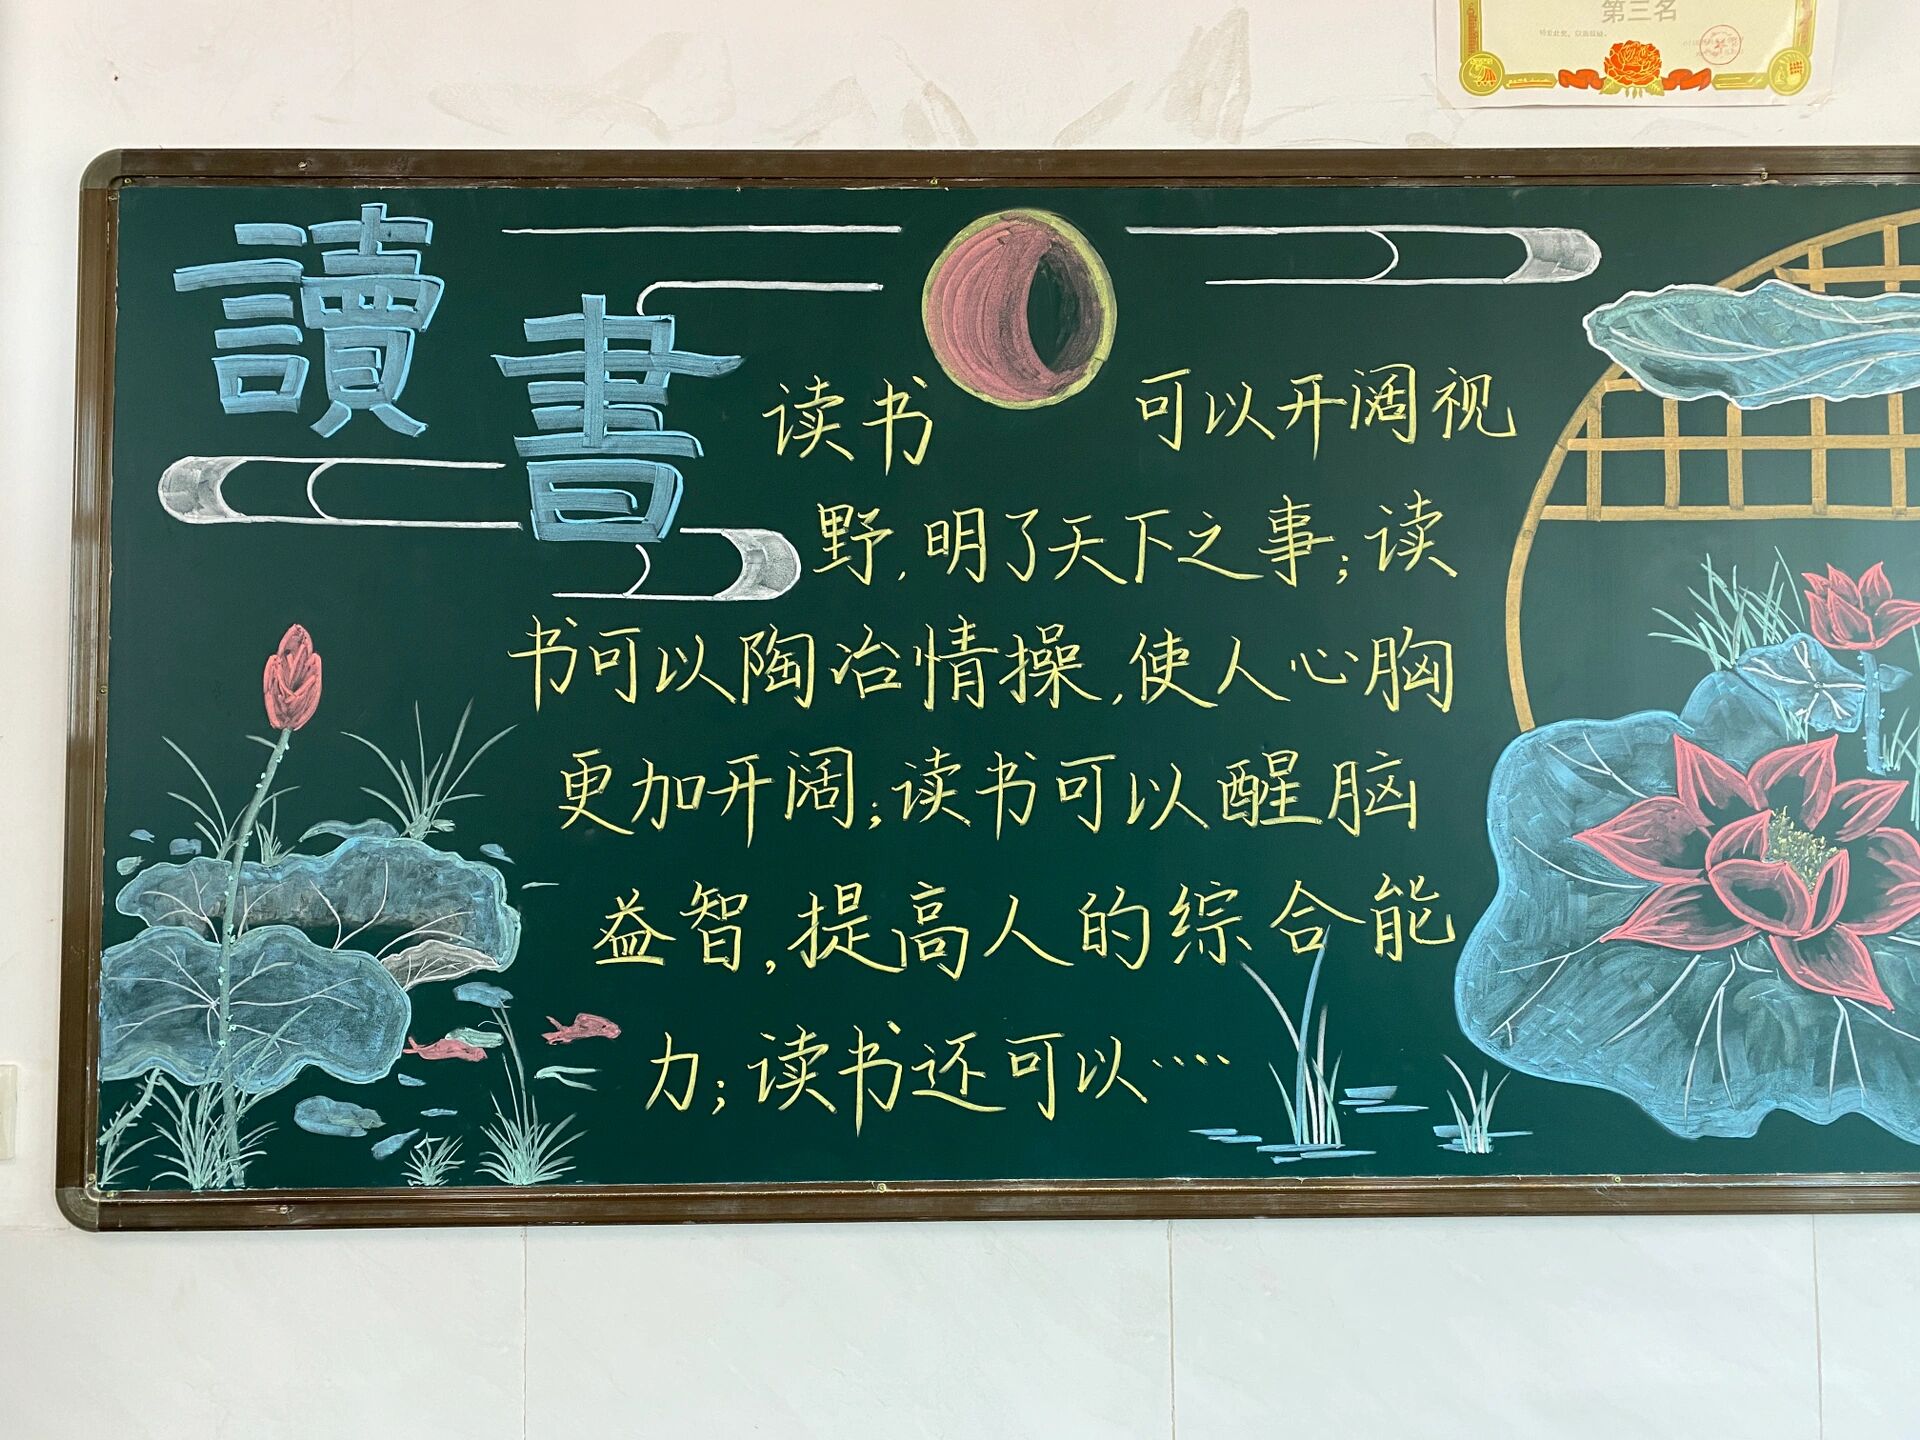 第三名
讀書
读书 可以开阔视
野,明了天下之事;读
书可以陶冶情操,使人心胸
更加开阔;读书可以醒脑
益智,提高人的综合能
力;读书还可以····